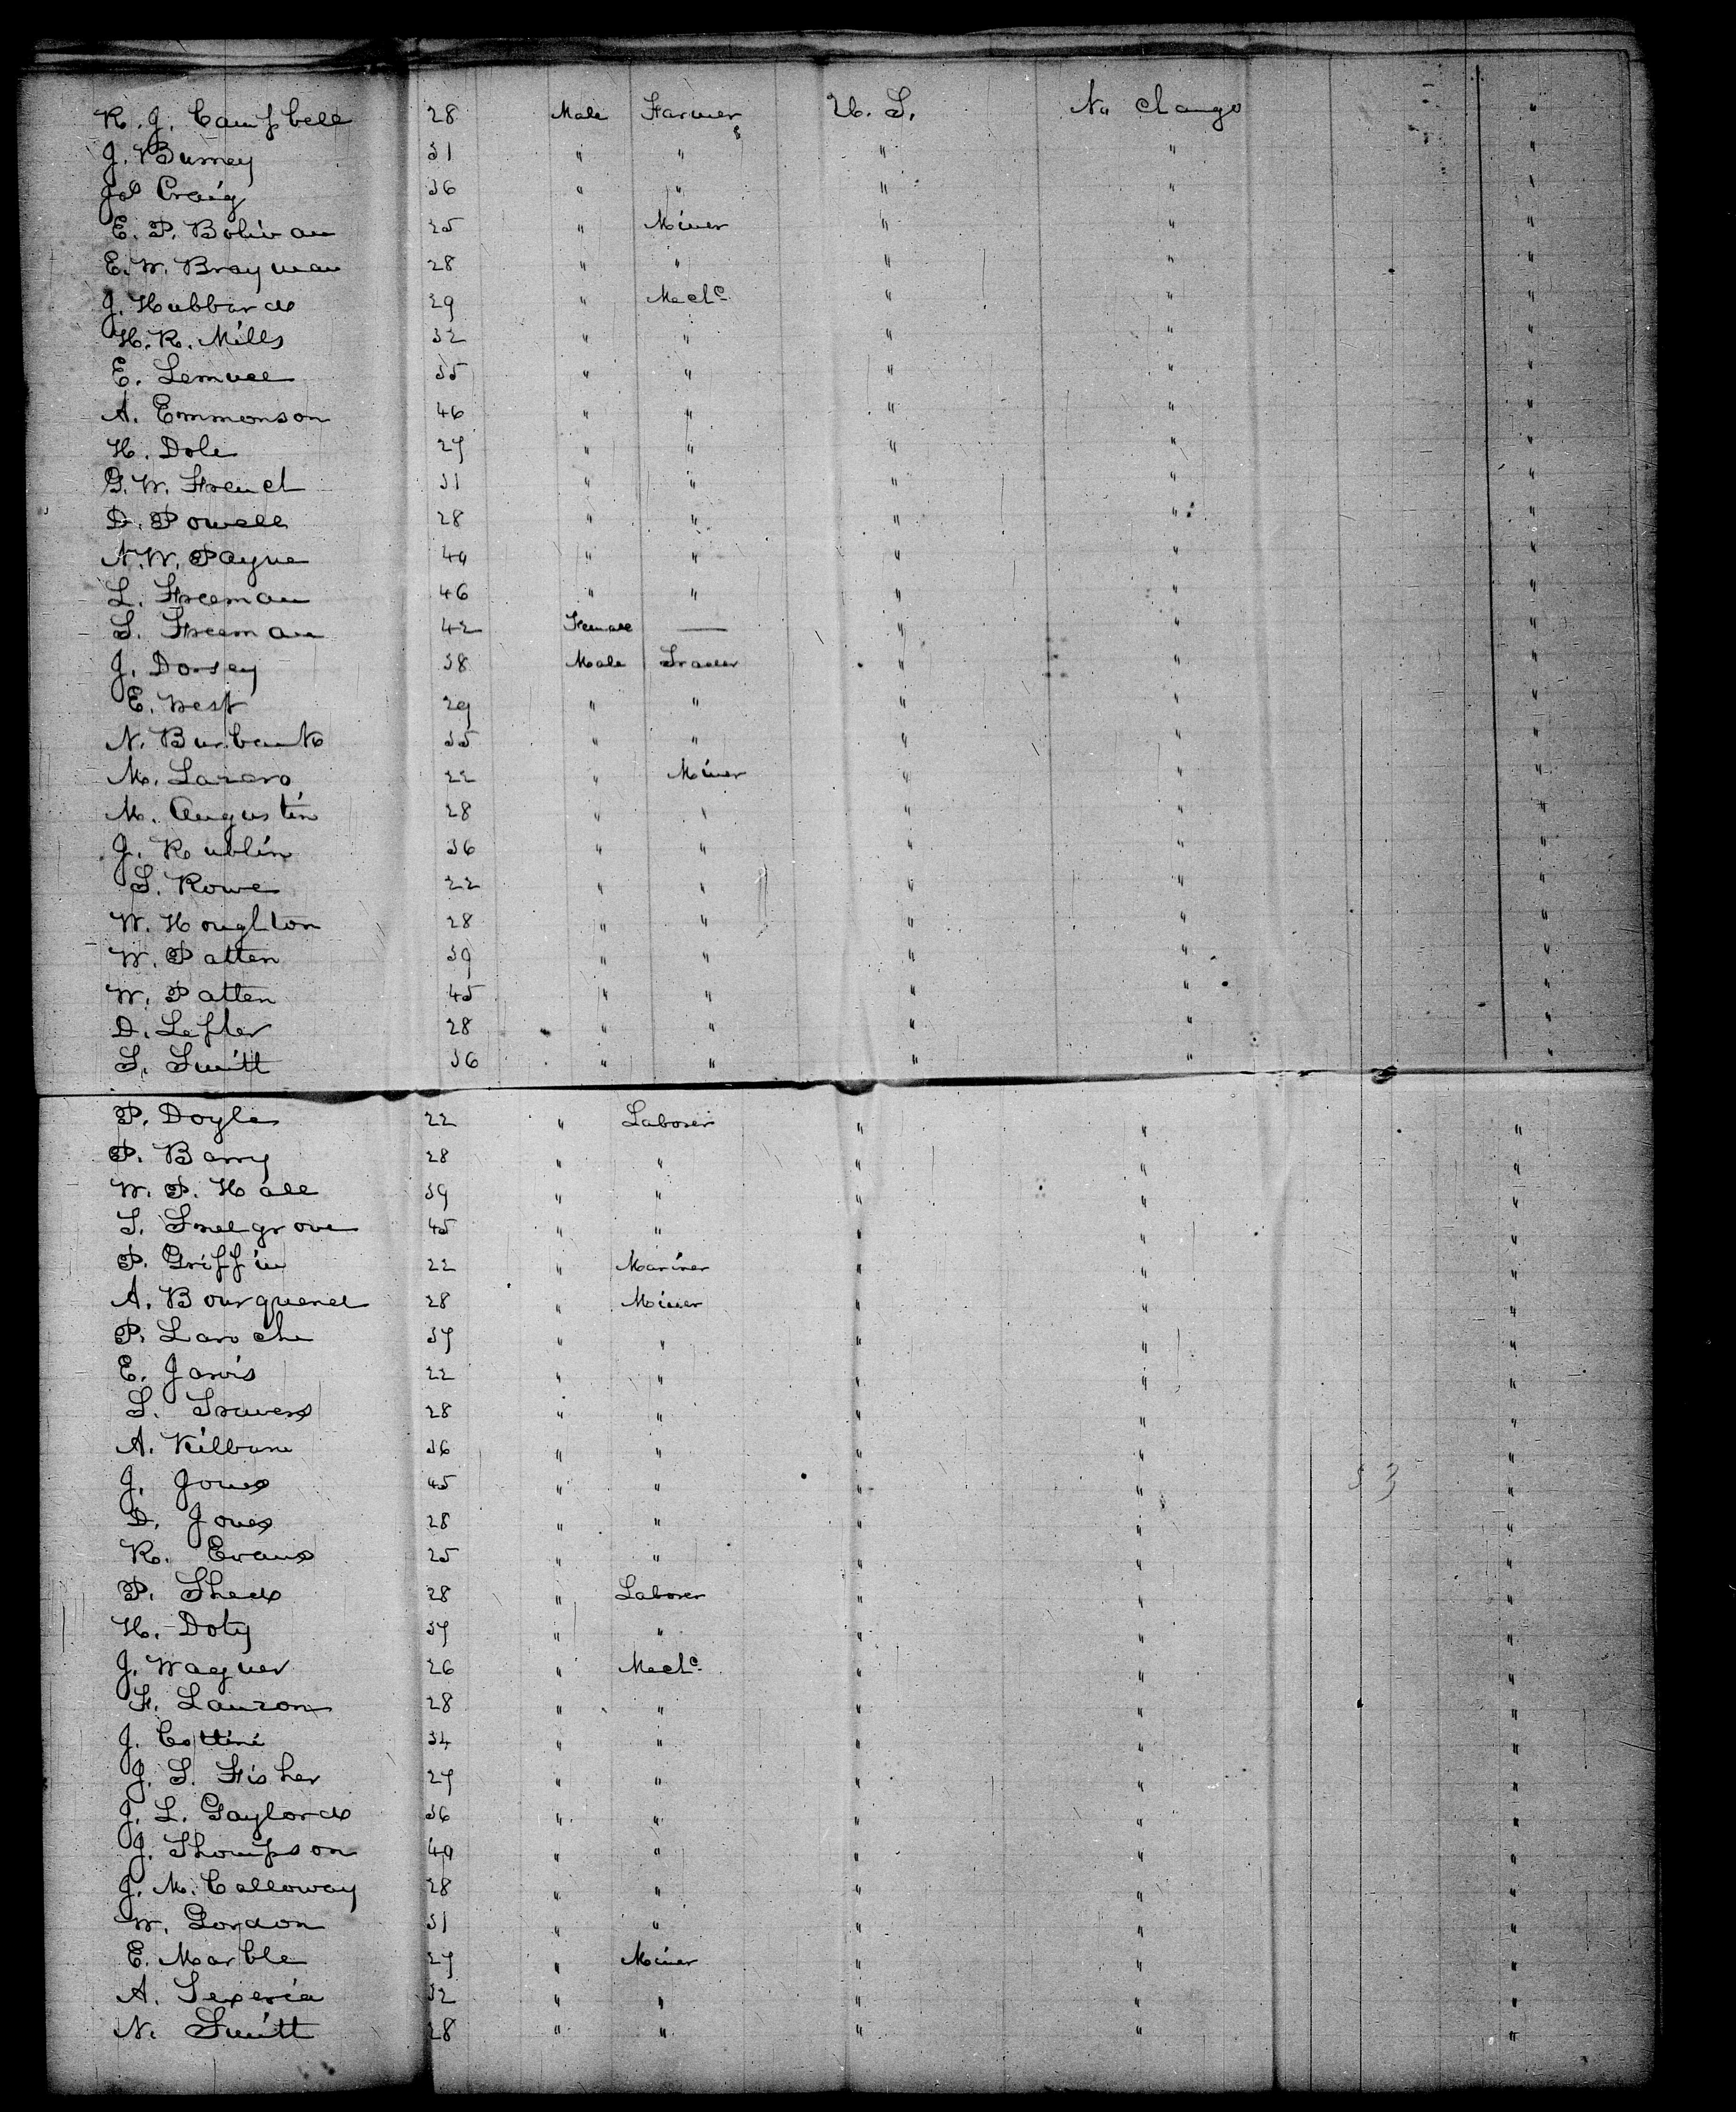 R. J. Campbell 28 Male Farmer U. S. No Change "
J. Burney 31 " " " " "
Jos Craig 36 " " " " "
E. P. Bolivan 25 " Miner " " "
E. W. Brayman 28 " " " " "
J. Hubbard 29 " Mechc " " "
H. R. Mills 32 " " " " "
E. Lemuel 35 " " " " "
A. Emmonson 46 " " " " "
H. Dole 27 " " " " "
G. W. French 31 " " " " "
D. Powell 28 " " " " "
N. W. Payne 40 " " " " "
L. Freeman 46 " " " " "
S. Freeman 42 Female — " " "
J. Dorsey 38 Male Trader " " "
E. West 29 " " " " "
N. Burbank 35 " " " " "
M. Lazaro 22 " Miner " " "
M. Augustin 28 " " " " "
J. Rublin 36 " " " " "
S. Rowe 22 " " " " "
W. Houghton 28 " " " " "
W. Patten 39 " " " " "
W. Patten 45 " " " " "
D. Lefler 28 " " " " "
S. Smith 36 " " " " "
P. Doyle 22 " Laborer " " "
P. Barry 28 " " " " "
W. P. Hall 39 " " " " "
S. Snelgrove 45 " " " " "
P. Griffin 22 " Mariner " " "
A. Bourquenel 28 " Miner " " "
P. Laroche 37 " " " " "
E. Jarvis 22 " " " " "
S. Travers 28 " " " " "
A. Kilburn 36 " " " " "
J. Jones 45 " " " " "
D. Jones 28 " " " " "
R. Evans 25 " " " " "
P. Shed 28 " Laborer " " "
H. Doty 37 " " " " "
J. Wagner 26 " Mechc " " "
F. Lauzon 28 " " " " "
J. Cottini 34 " " " " "
J. S. Fisher 27 " " " " "
J. L. Gaylord 36 " " " " "
J. Thompson 40 " " " " "
J. M. Calloway 28 " " " " "
W. Gordon 31 " " " " "
E. Marble 27 " Miner " " "
A. Texeria 32 " " " " "
N. Smith 28 " " " " "